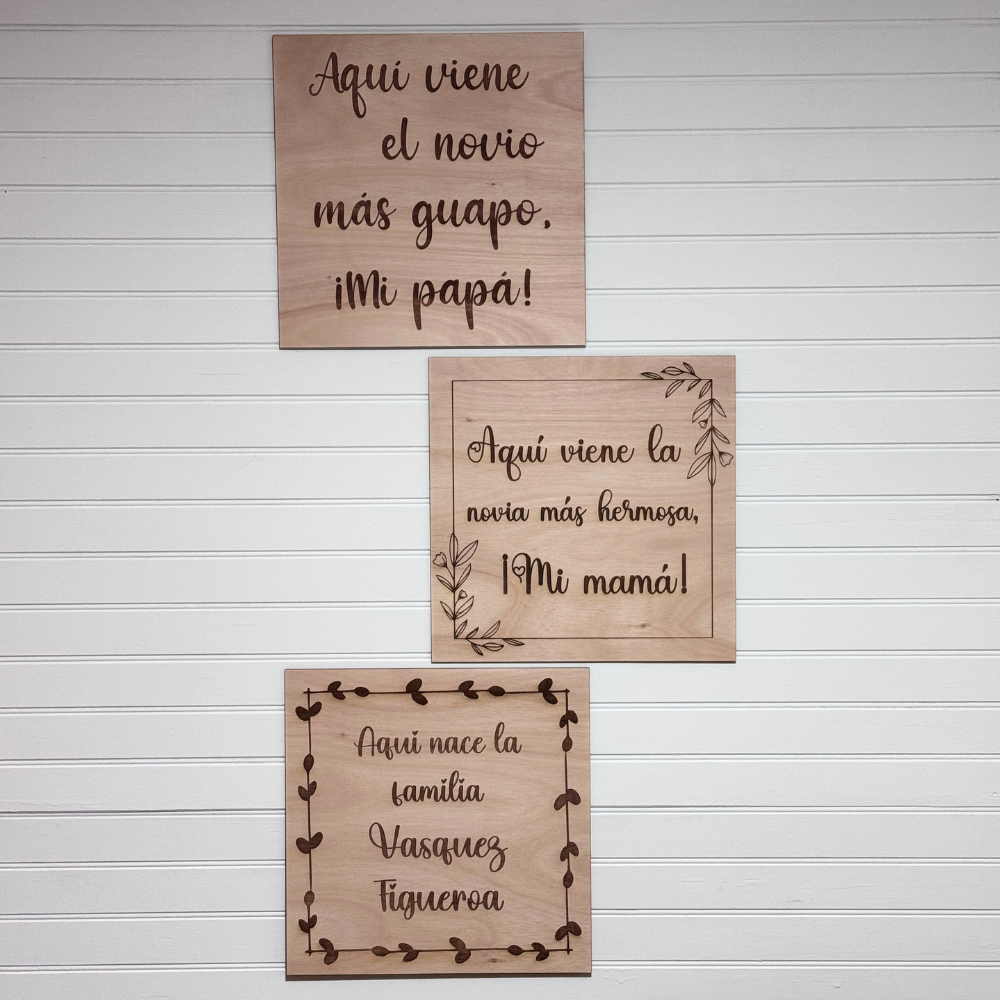 Aquí viene
el novio
más guapo.
¡Mi papá!
Aquí viene la
novia más hermosa,
¡Mi mamá!
Aqui nace la
familia
Vasquez
Figueroa